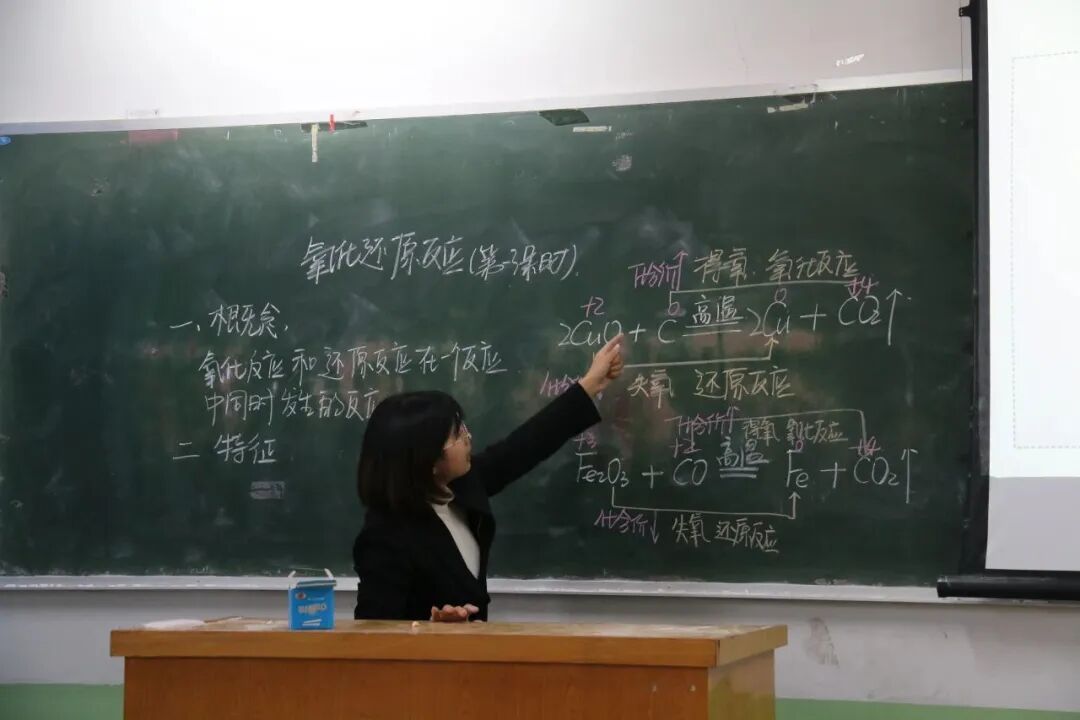 氧化还原反应(第一课时).
一、概念.
氧化反应和还原反应在一个反应
中同时发生的反应
二 特征
化合价↑ 得氧 氧化反应
+2 0 0 +4
2CuO + C 高温 2Cu + CO₂↑
化合价↓ 失氧 还原反应
化合价↑ 得氧 氧化反应
+3 +2 0 +4
Fe₂O₃ + CO 高温 Fe + CO₂↑
化合价↓ 失氧 还原反应